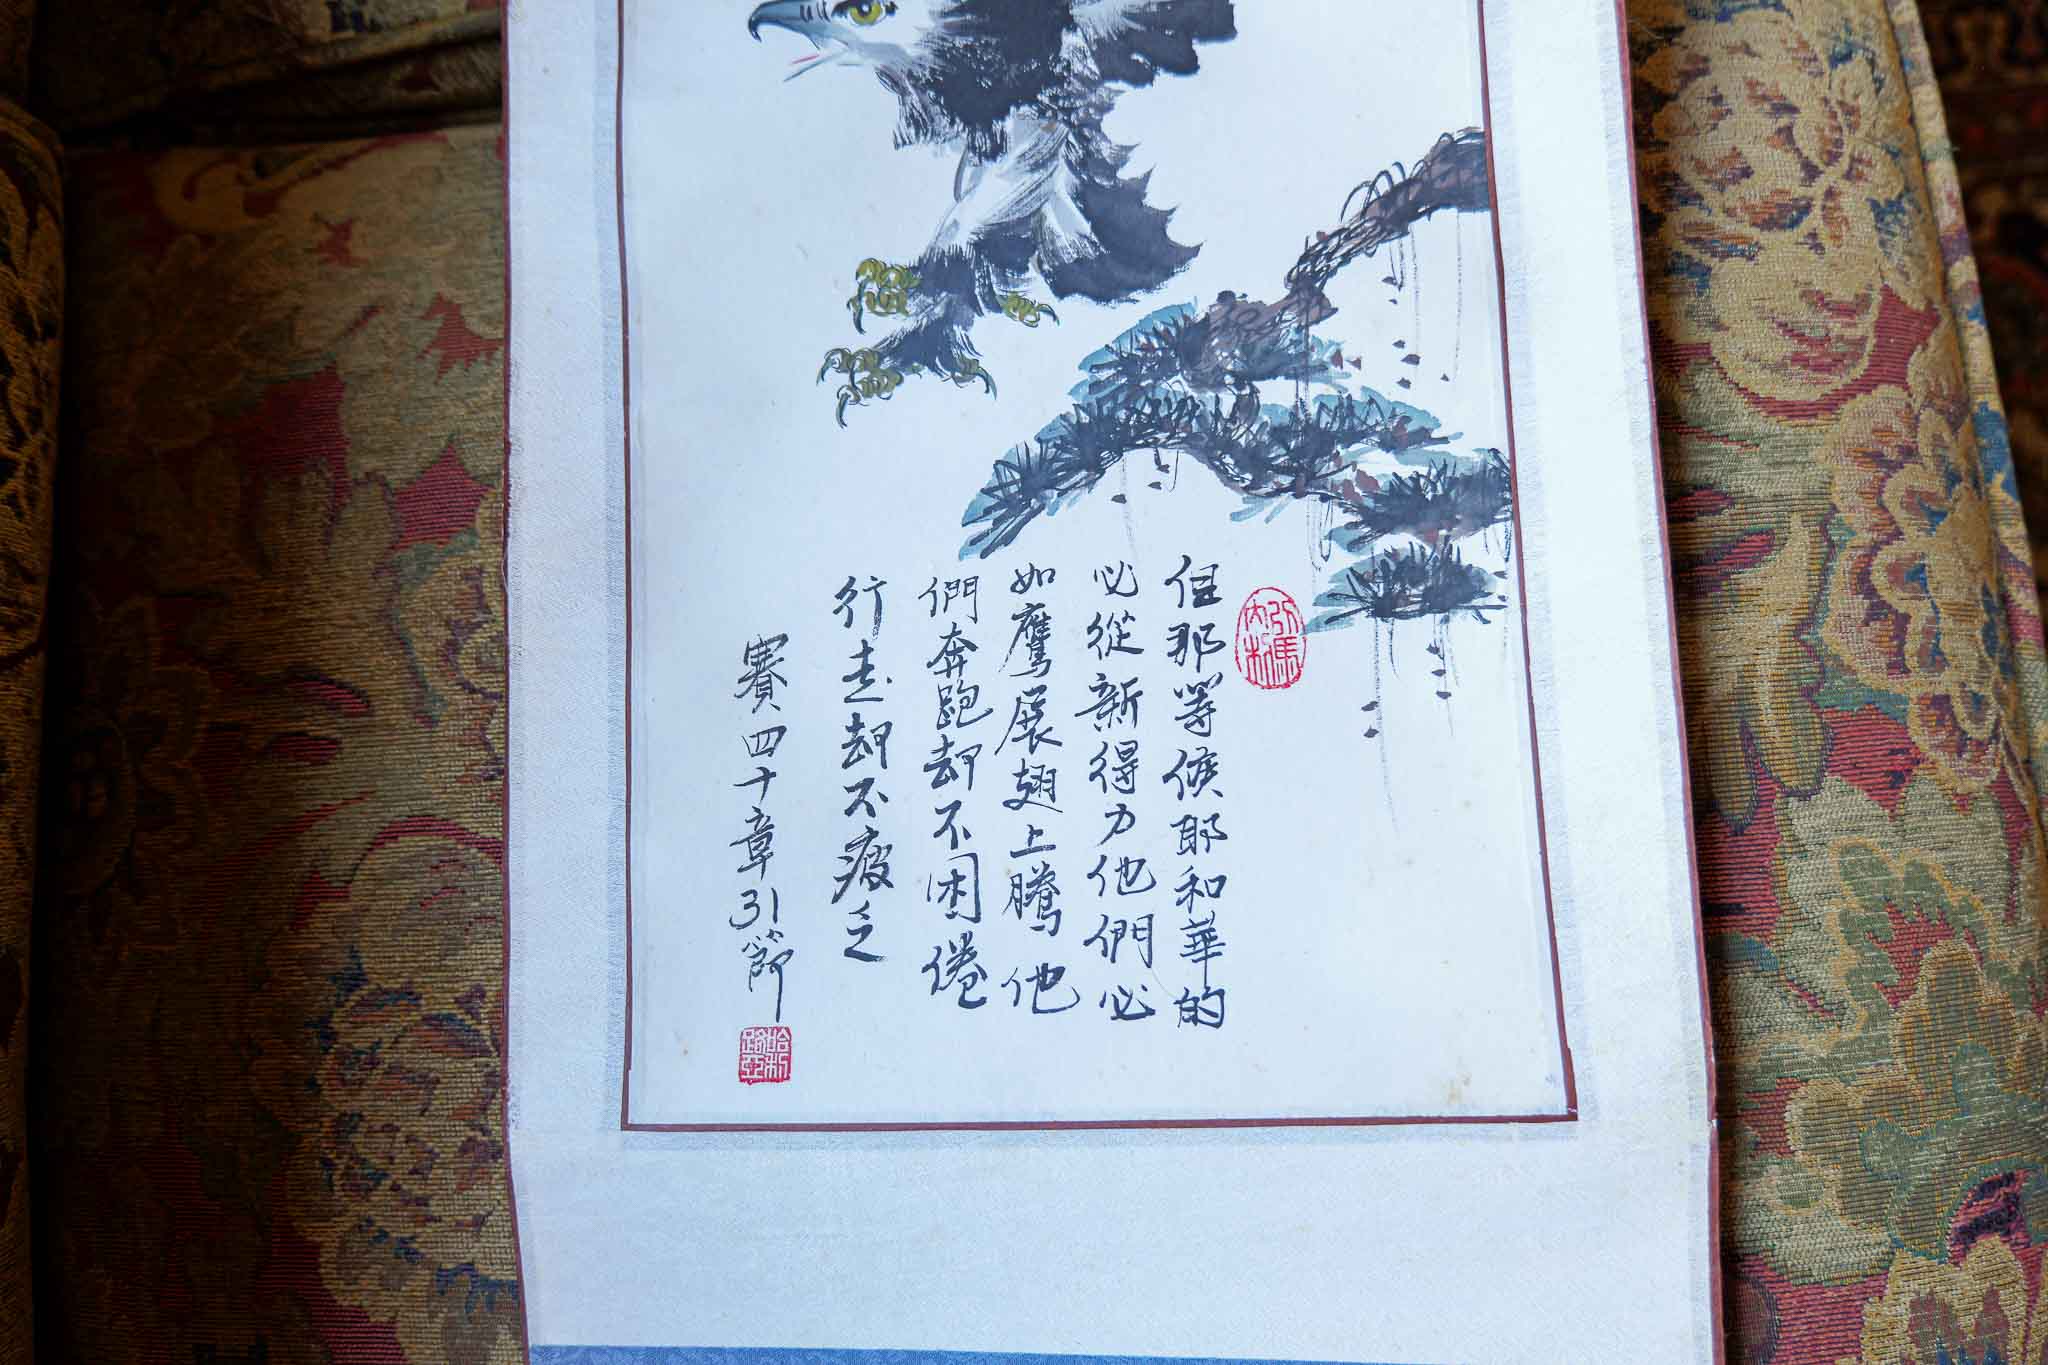 但那等候耶和華的
必從新得力他們必
如鷹展翅上騰他
們奔跑却不困倦
行走却不疲乏
賽四十章31節
以馬內利
哈利路亞